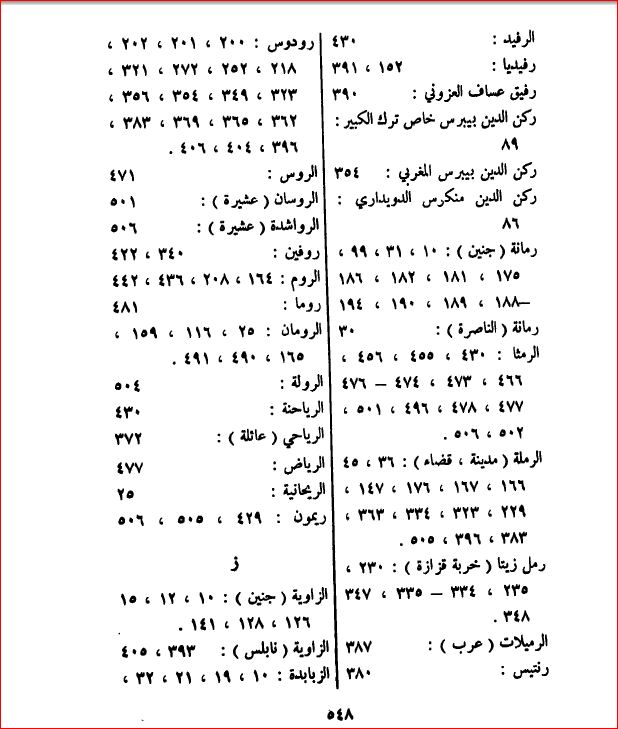 الرفيد : ٤٣٠
رفيديا : ١٥٢ ، ٣٩١
رفيق عساف العزوني : ٣٩٠
ركن الدين بيبرس خاص ترك الكبير :
٨٩
ركن الدين بيبرس المغربي : ٣٥٤
ركن الدين منكرس الدويداري :
٨٦
رمانة ( جنين ) : ١٠ ، ٣١ ، ٩٩ ،
١٧٥ ، ١٨١ ، ١٨٢ ، ١٨٦
–١٨٨ ، ١٨٩ ، ١٩٠ ، ١٩٤
رمانة ( الناصرة ) : ٣٠
الرمثا : ٤٣٠ ، ٤٥٥ ، ٤٥٦ ،
٤٦٦ ، ٤٧٣ ، ٤٧٤ – ٤٧٦
٤٧٧ ، ٤٧٨ ، ٤٩٦ ، ٥٠١ ،
٥٠٢ ، ٥٠٦ .
الرملة ( مدينة ، قضاء ) : ٣٦ ، ٤٥
١٦٦ ، ١٦٧ ، ١٧٦ ، ١٤٧ ،
٢٢٩ ، ٣٢٣ ، ٣٣٤ ، ٣٦٣ ،
٣٨٣ ، ٣٩٦ ، ٥٠٥ .
رمل زيتا ( خربة قزازة ) : ٢٣٠ ،
٢٣٥ ، ٣٣٤ – ٣٣٥ ، ٣٤٧
٣٤٨ .
الرميلات ( عرب ) : ٣٨٧
رنتيس : ٣٨٠
رودوس : ٢٠٠ ، ٢٠١ ، ٢٠٢ ،
٢١٨ ، ٢٥٢ ، ٢٧٢ ، ٣٢١ ،
٣٢٣ ، ٣٤٩ ، ٣٥٤ ، ٣٥٦ ،
٣٦٢ ، ٣٦٥ ، ٣٦٩ ، ٣٨٣ ،
٣٩٦ ، ٤٠٤ ، ٤٠٦ .
الروس : ٤٧١
الروسان ( عشيرة ) : ٥٠١
الرواشدة ( عشيرة ) : ٥٠٦
روفين : ٣٤٠ ، ٤٢٢
الروم : ١٦٤ ، ٢٠٨ ، ٤٣٦ ، ٤٤٢
روما : ٤٨١
الرومان : ٢٥ ، ١١٦ ، ١٥٩ ،
١٦٥ ، ٤٩٠ ، ٤٩١ .
الرولة : ٥٠٤
الرياحنة : ٤٣٠
الرياحي ( عائلة ) : ٣٧٢
الرياض : ٤٧٧
الريحانية : ٢٥
ريمون : ٤٢٩ ، ٥٠٥ ، ٥٠٦
ز
الزاوية ( جنين ) : ١٠ ، ١٢ ، ١٥
١٢٦ ، ١٢٨ ، ١٤١ .
الزاوية ( نابلس ) : ٣٩٣ ، ٤٠٥
الزبابدة : ١٠ ، ١٩ ، ٢١ ، ٣٢ ،
٥٤٨